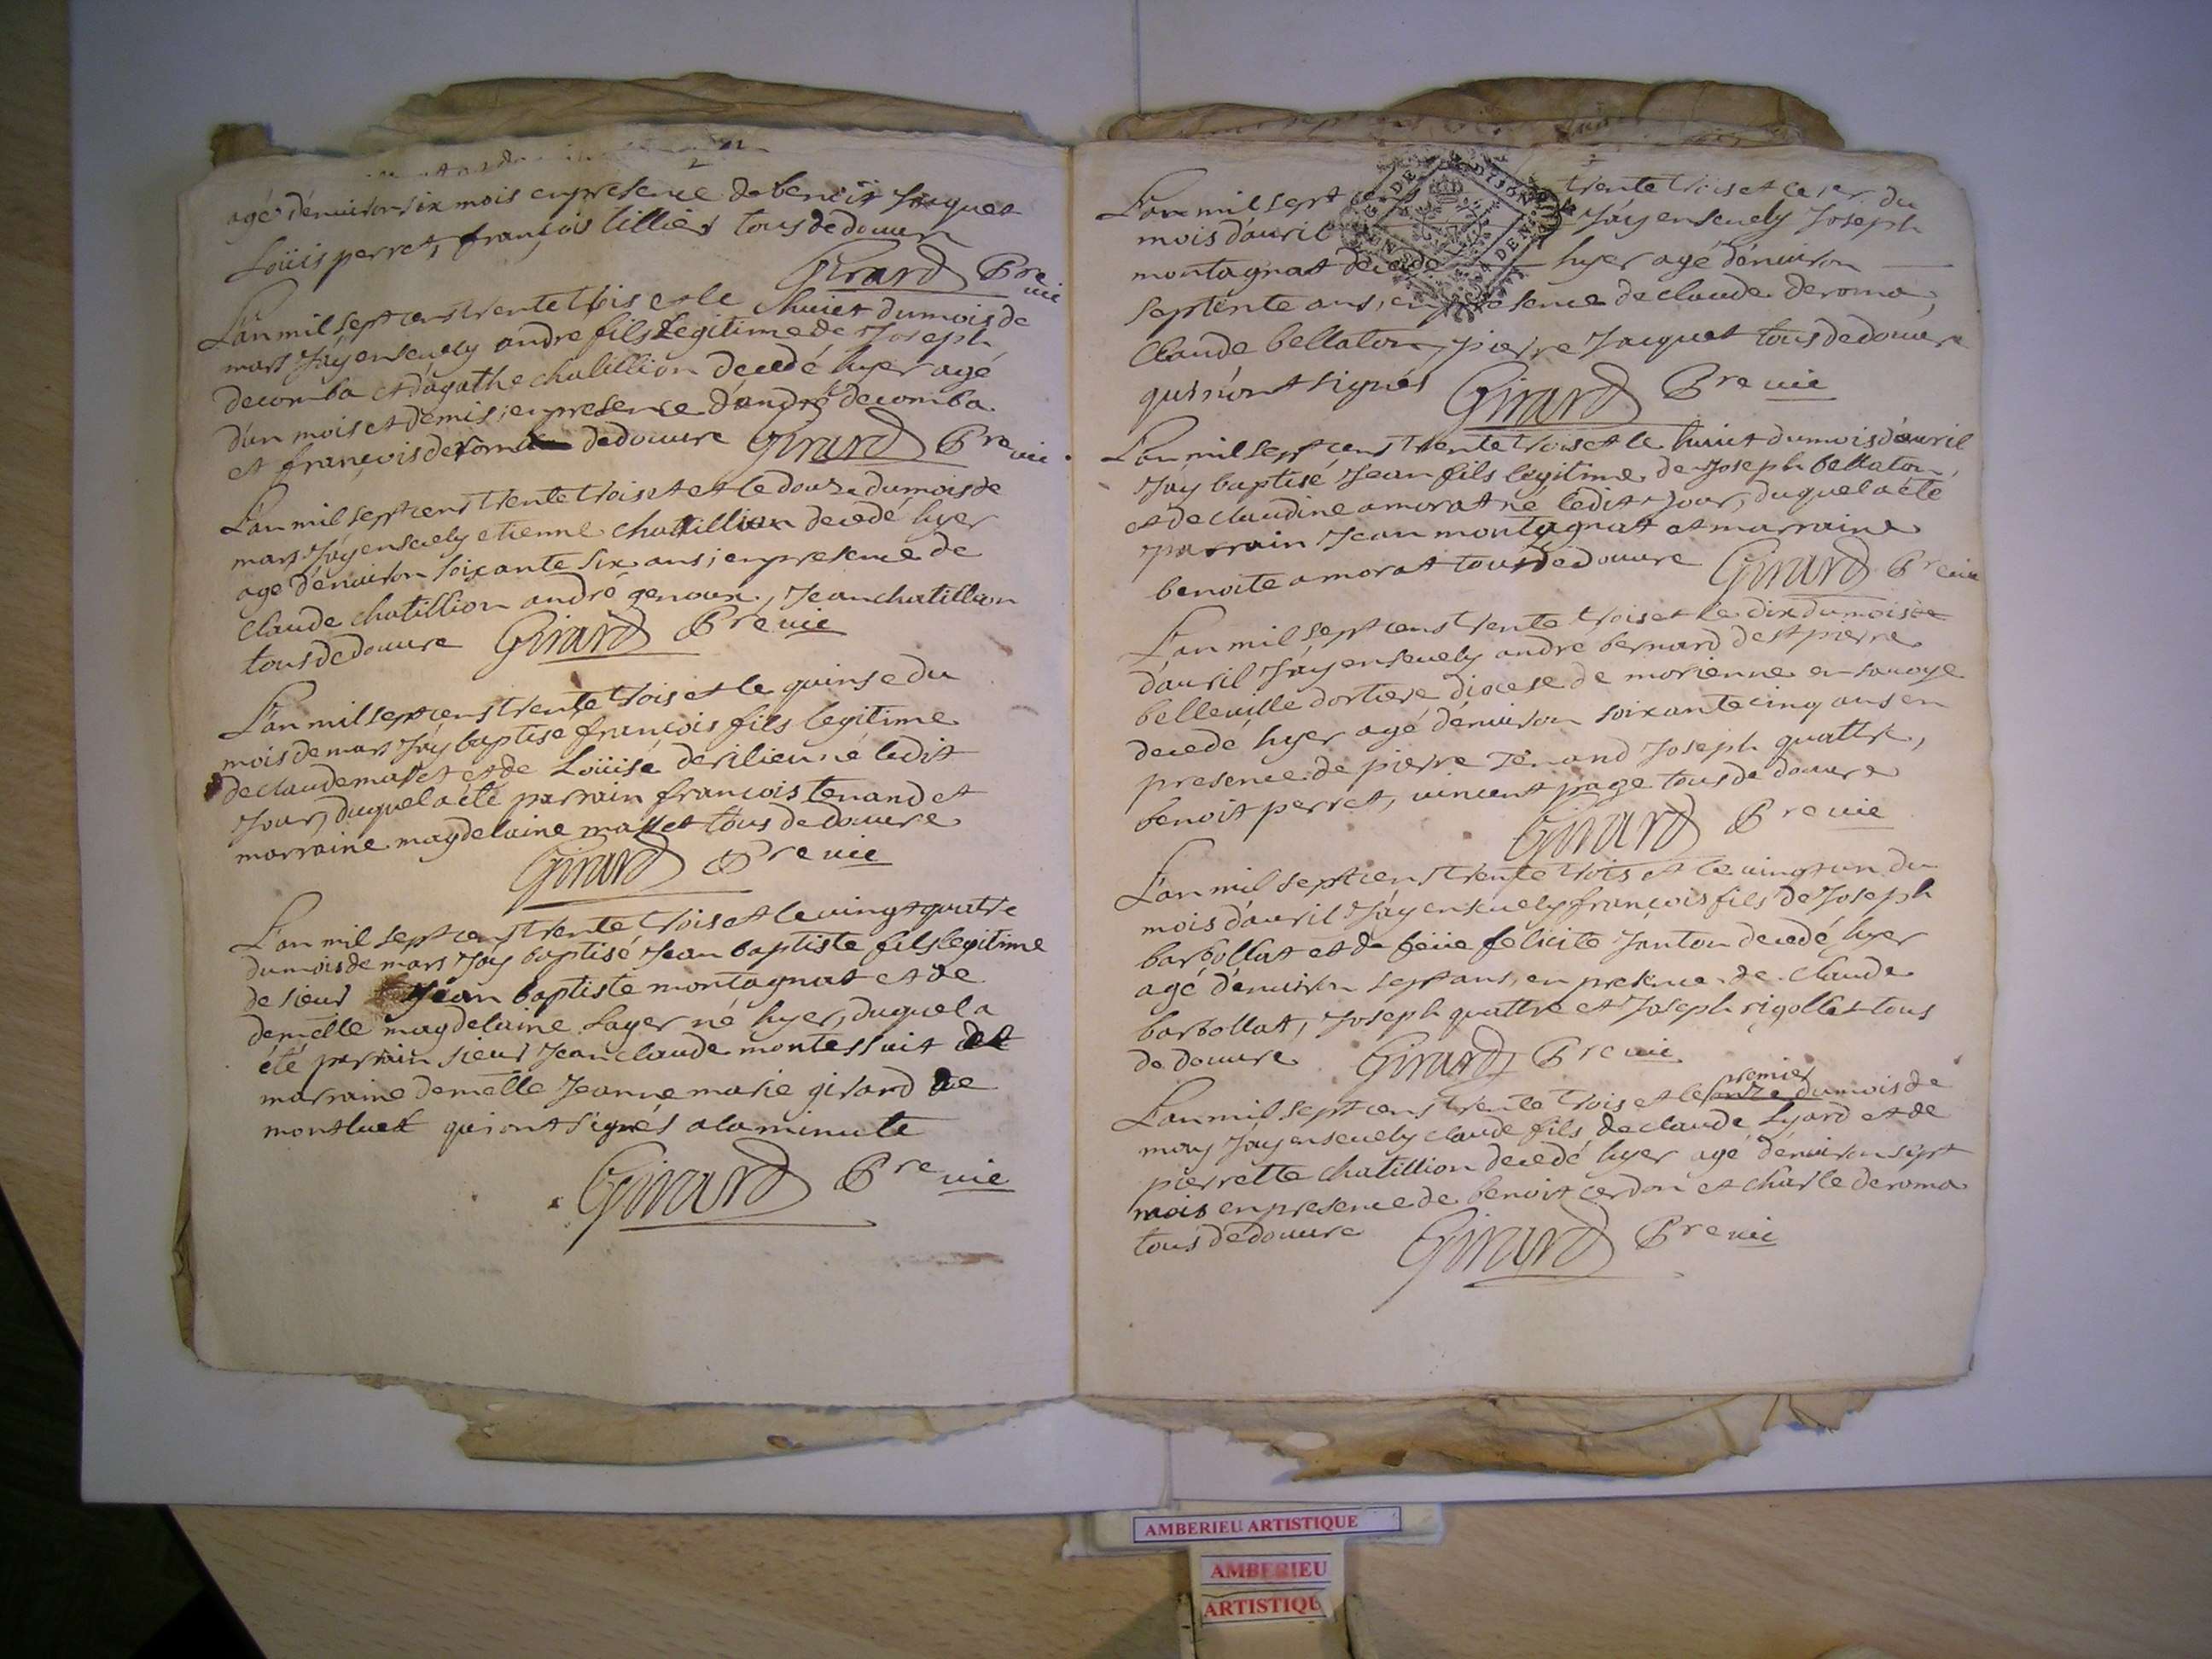 agé d'enuiron six mois en presence de benoit Jacques
Loüis perret, françois tillier tous de douure
Girard Bre vic
L'an mil sept cens trente trois et le huict du mois de
mars J'ay enseuely andre fils legitime de Joseph
decomba et d'agathe chatillion decedé hyer agé
d'un mois et demis; en presence d'andré decomba
et françois deroma de douure Girard Bre vic
L'an mil sept cens trente trois et et le douze du mois de
mars J'ay enseuely etienne chatillion decedé hyer
agé d'enuiron soixante six ans; en presence de
Claude chatillion andré genoux, Jean chatillion
tous de douure Girard Bre vic
L'an mil sept cens trente trois et le quinse du
mois de mars J'ay baptisé françois fils legitime
de claude masset et de Loüise derilieu né ledit
Jour, duquel a eté parrain francois tenand et
marraine magdelaine masset tous de douure
Girard Bre vic
L'an mil sept cens trente trois et le uingt quatre
du mois de mars J'ay baptisé Jean baptiste fils legitime
de sieur Jean baptiste montagnat et de
demelle magdelaine Layer né hyer, duquel a
eté parrain sieur Jean claude montessuit et
marraine demelle Jeanne marie girard de
montluet qui ont signés a la minute
Girard Bre vic
L'an mil sept cens trente trois et le 1er du
mois d'auril J'ay enseuely Joseph
montagnat decedé hyer agé d'enuiron
septente ans, en presence de claude deroma,
Claude bellaton, pierre Jacquet tous de douure
qui n'ont signés Girard Bre vic
L'an mil sept cens trente trois et le huict du mois d'auril
J'ay baptisé Jean fils legitime de Joseph bellaton,
et de claudine amorat né ledit Jour, duquel a eté
parrain Jean montagnat et marraine
benoite amorat tous de douure Girard Bre vic
L'an mil sept cens trente trois et le dix du mois de
d'auril J'ay enseuely andré bernard de st pierre
belleuille dortiere, diocese de morienne en sauoye
decedé hyer agé d'enuiron soixante cinq ans en
presence de pierre Tenand Joseph quattre,
benoit perret, uincent page tous de douure
Girard Bre vic
L'an mil sept cens trente trois et le uingt un du
mois d'auril J'ay enseuely françois fils de Joseph
barbollat et de feüe felicite Janton decedé hyer
agé d'enuiron sept ans, en presence de Claude
barbollat, Joseph quattre et Joseph rigollet tous
de douure Girard Bre vic
premier
L'an mil sept cens trente trois et le onze du mois de
may J'ay enseuely claude fils de claude Lyard et de
pierrette chatillion decedé hyer agé d'enuiron sept
mois en presence de benoit cerdon et charle deroma
tous de douure Girard Bre vic
AMBERIEU ARTISTIQUE
AMBERIEU
ARTISTIQU